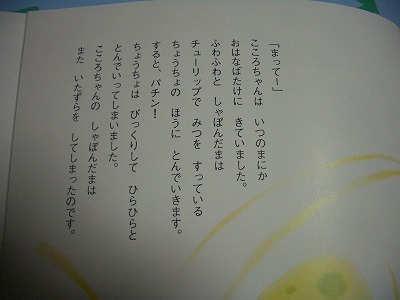 「まってー」
こころちゃんは　いつのまにか
おはなばたけに　きていました。
ふわふわと　しゃぼんだまは
チューリップで　みつを　すっている
ちょうちょの　ほうに　とんでいきます。
すると、パチン！
ちょうちょは　びっくりして　ひらひらと
とんでいってしまいました。
こころちゃんの　しゃぼんだまは
また　いたずらを　してしまったのです。